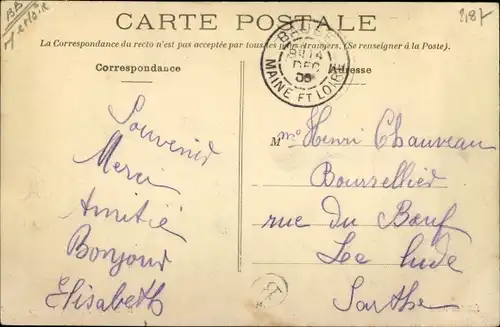 2187
CARTE POSTALE
La Correspondance du recto n'est pas acceptée par tous les pays étrangers. (Se renseigner à la Poste).
Correspondance
Adresse
BAUGÉ
14
DEC
MAINE ET LOIRE
Souvenir
Merci
Amitié
Bonjour
Elisabeth
M Henri Chauveau
Boursellier
rue du Bœuf
Le lude
Sarthe